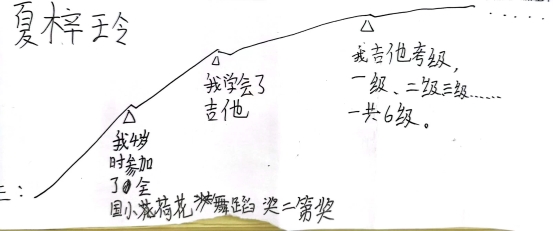 夏梓玲
我吉他考级，
一级、二级三级……
一共6级。
我学会了
吉他
我4岁
时参加
了全
国小荷花舞蹈奖二等奖